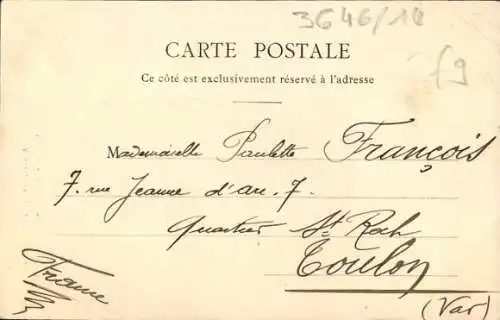 3646/14
CARTE POSTALE
Ce côté est exclusivement réservé à l'adresse
f9
Mademoiselle Paulette François
7. rue Jeanne d'arc. 7.
Quartier St. Roch
Toulon
(Var)
France